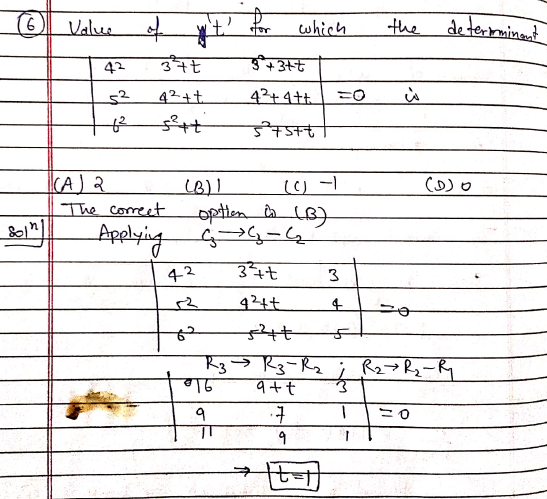 (6) Value of 't' for which the determinant
| 4² 3²+t 3²+3+t |
| 5² 4²+t 4²+4+t | =0 is
| 6² 5²+t 5²+5+t |
(A) 2 (B) 1 (C) -1 (D) 0
The correct option is (B)
Solⁿ] Applying C₃→C₃-C₂
| 4² 3²+t 3 |
| 5² 4²+t 4 | =0
| 6² 5²+t 5 |
R₃→R₃-R₂ ; R₂→R₂-R₁
| 16 9+t 3 |
| 9 7 1 | =0
| 11 9 1 |
→ t=1